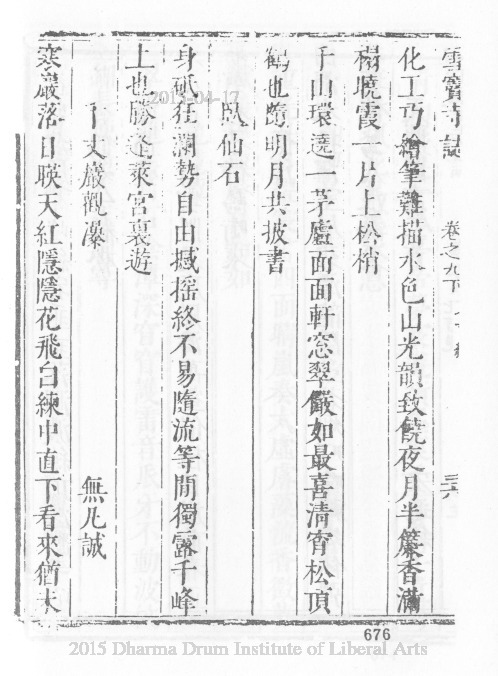 雪竇寺誌　卷之九下　　三六
化工巧繪筆難描水色山光韻致饒夜月半簾香滿
榻曉霞一片上松梢
千山環遶一茅廬面面軒窓翠儼如最喜清宵松頂
鶴也隨明月共披書
臥仙石
身砥狂瀾勢自由撼搖終不易隨流等閒獨露千峰
上也勝蓬萊宮裏遊
千丈巖觀瀑　　無凡誠
寒巖落日暎天紅隱隱花飛白練中直下看來猶未
676
2013-04-17
2015 Dharma Drum Institute of Liberal Arts